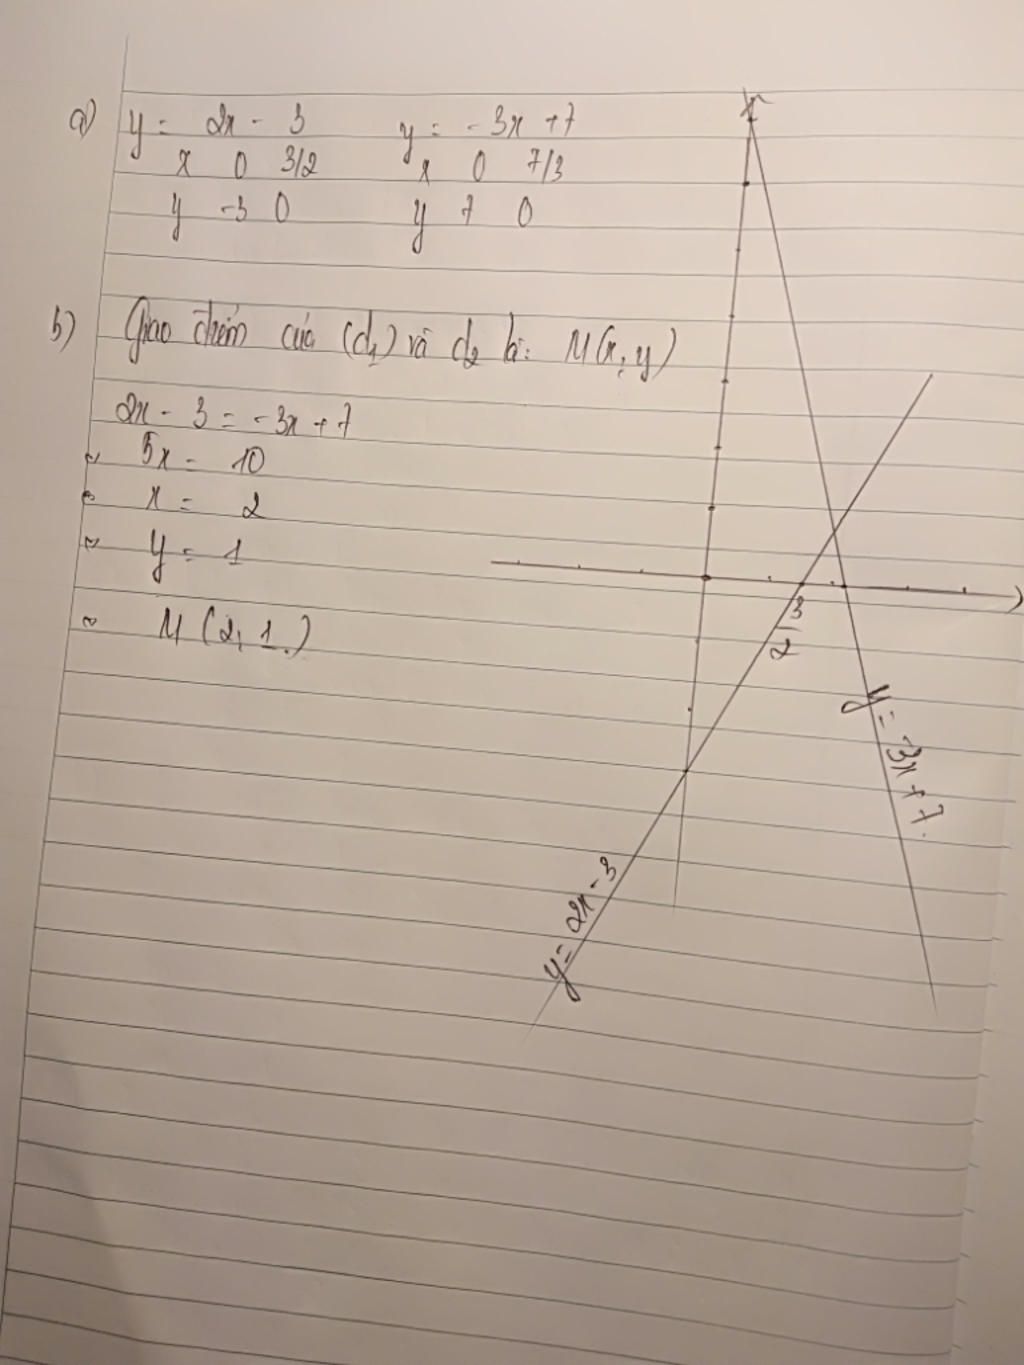 a) y = 2x - 3 y = -3x + 7
x 0 3/2 x 0 7/3
y -3 0 y 7 0
b) Giao điểm của (d1) và d2 là: M(x, y)
2x - 3 = -3x + 7
~ 5x = 10
~ x = 2
~ y = 1
~ M (2, 1.)
3
2
y = -3x + 7.
y = 2x - 3